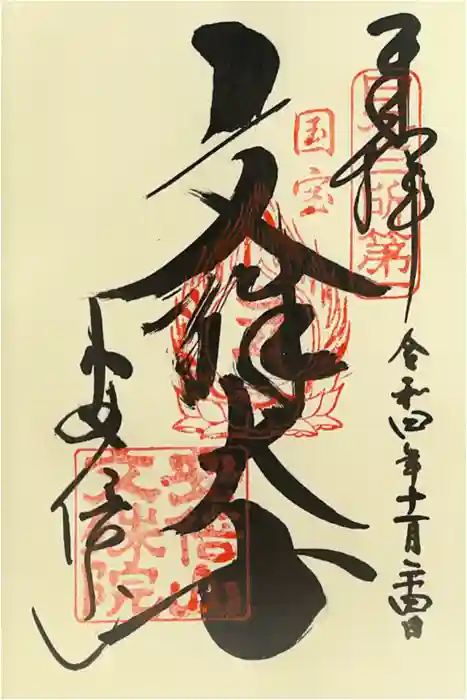 奉拝
日本三所第一
令和四年十一月二十四日
国宝
文殊大
安倍
安倍山
文殊院